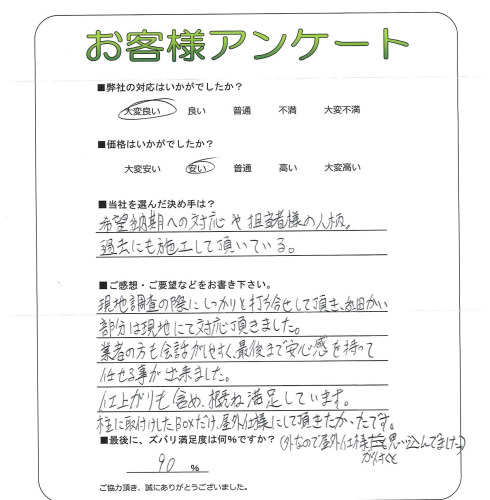 お客様アンケート
■弊社の対応はいかがでしたか？
大変良い 良い 普通 不満 大変不満
■価格はいかがでしたか？
大変安い 安い 普通 高い 大変高い
■当社を選んだ決め手は？
希望納期への対応や担当者様の人柄。
過去にも施工して頂いている。
■ご感想・ご要望などをお書き下さい。
現地調査の際にしっかりと打ち合せして頂き、細かい
部分は現地にて対応頂きました。
業者の方も会話がしやすく、最後まで安心感を持って
任せる事が出来ました。
仕上がりも含め、概ね満足しています。
柱に取付けしたBoxだけ、屋外仕様にして頂きたかったです。
■最後に、ズバリ満足度は何%ですか？ (外なので屋外仕様と思い込んでました)
90 %
ご協力頂き、誠にありがとうございました。